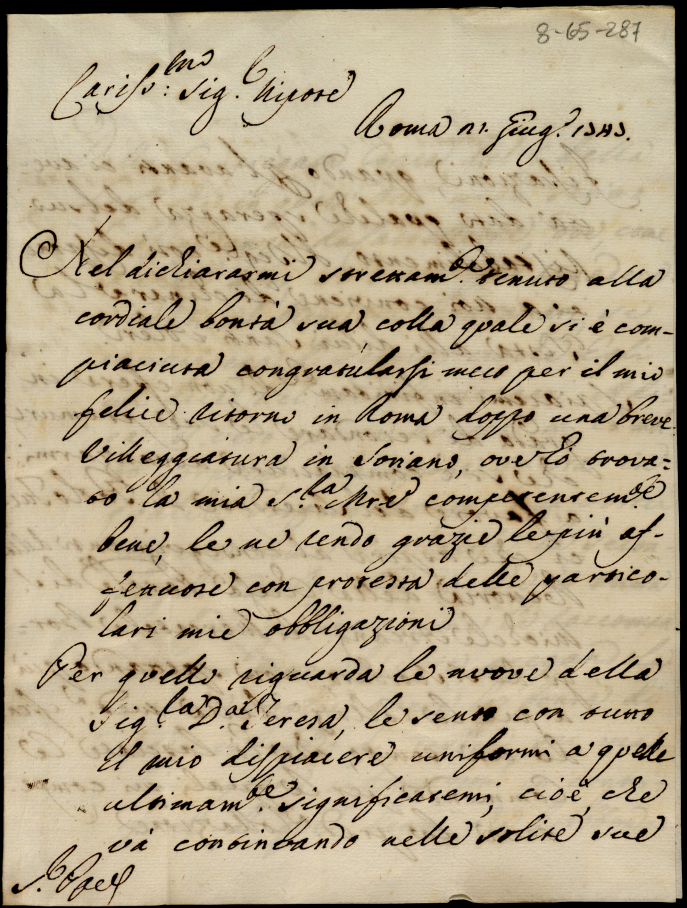 8-65-287
Cariss:mo Sig.r Nipote
Roma 21. Giug.o
Nel dichiararmi strettam.te tenuto alla
cordiale bontà sua colla quale si è com-
piaciuta congratularsi meco per il mio
felice ritorno in Roma doppo una breve
Villeggiatura in Soriano, ove hò trova-
to la mia S.ra Mre competentem.te
bene, le ne rendo grazie le più af-
fettuose con protesta delle partico-
lari mie obbligazioni
Per quello riguarda le nuove della
Sig.ra D.a Teresa, le sento con tutto
il mio dispiacere uniformi a quelle
ultimam.te significatemi, cioè, che
và continuando nelle solite sue